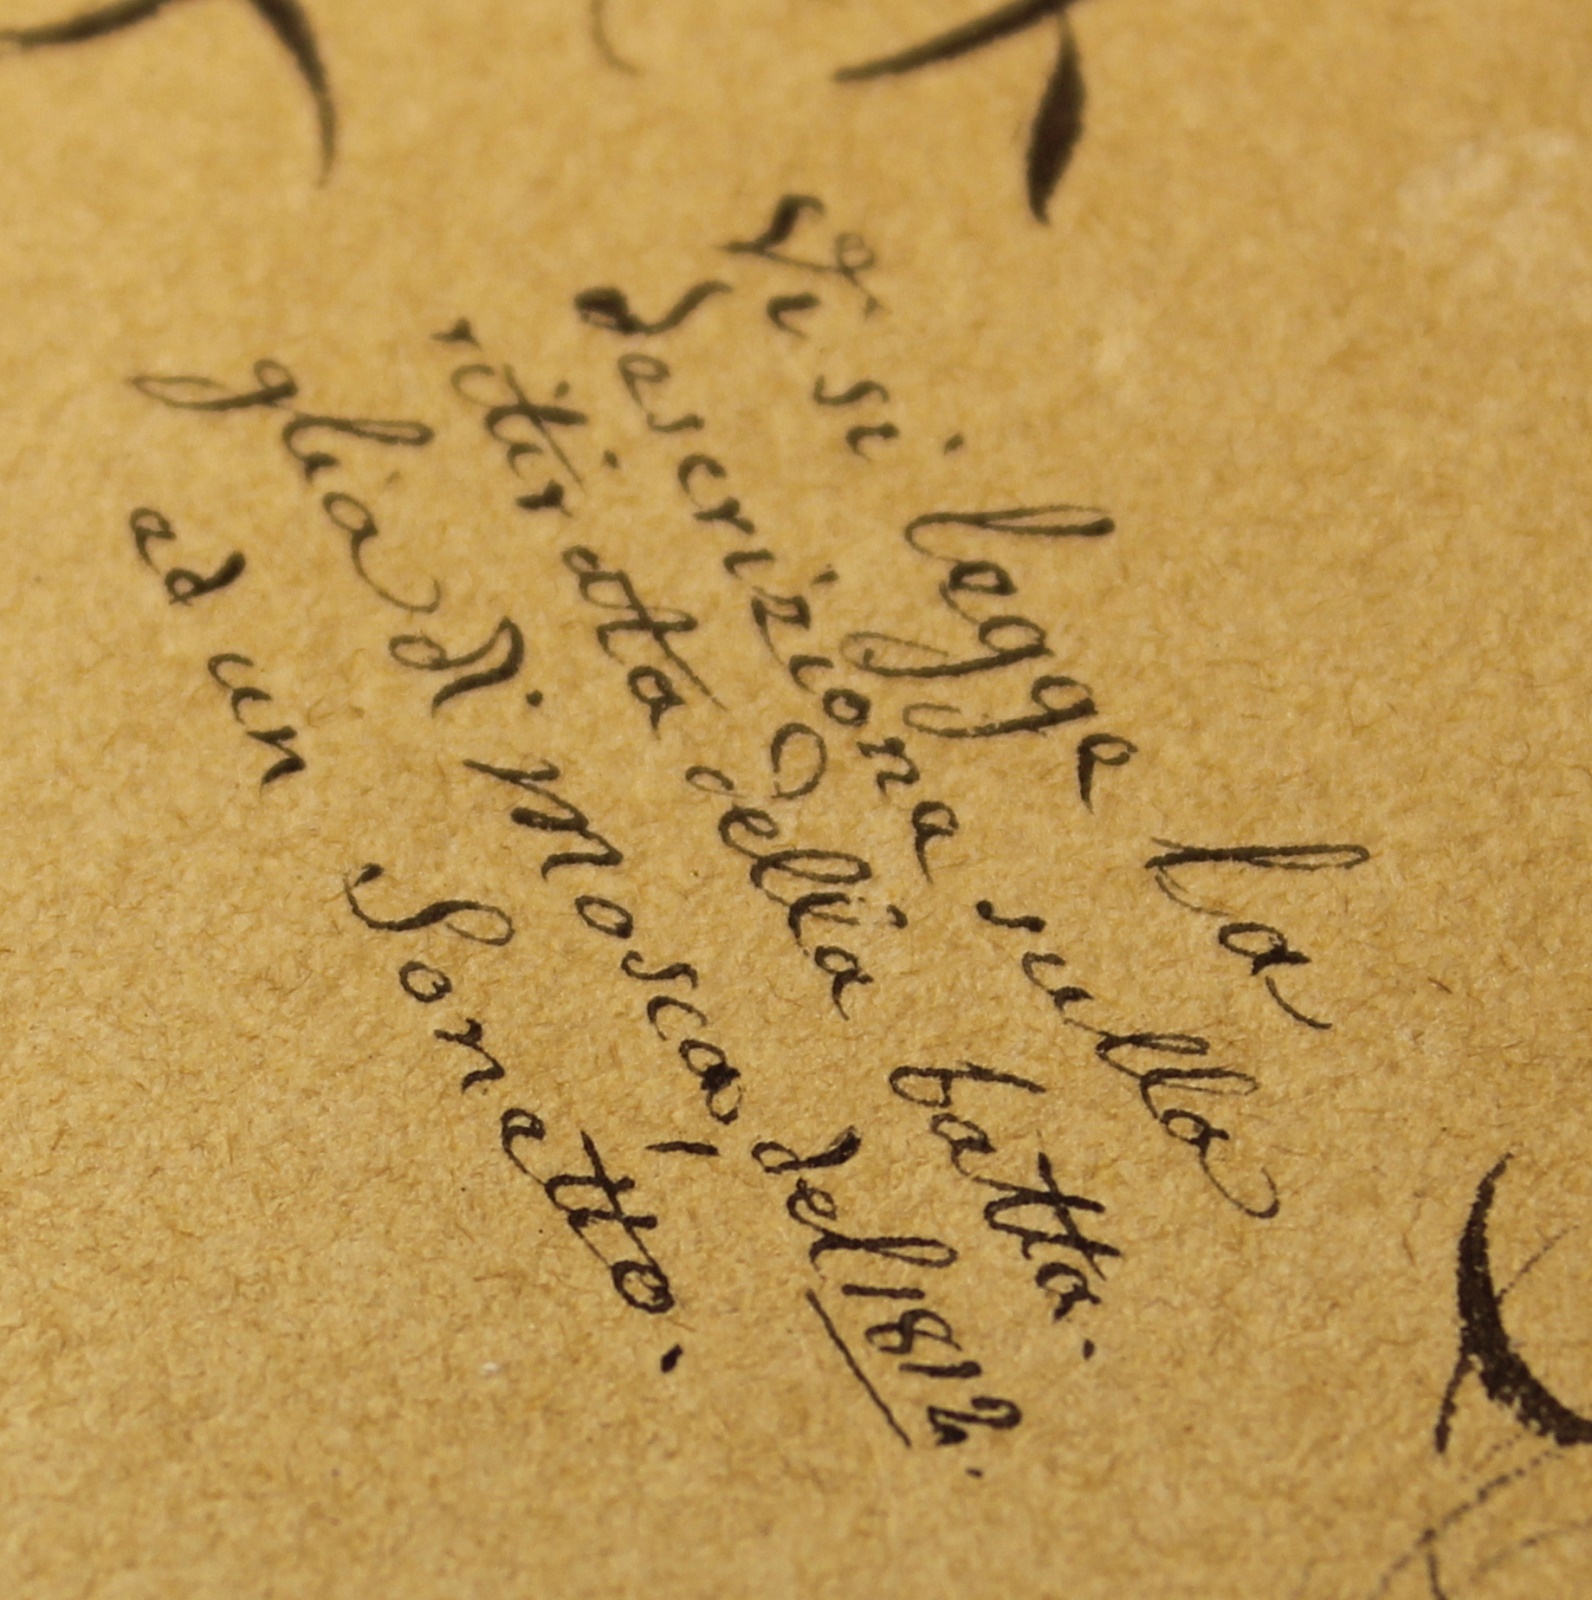 Vi si legge la
descrizione sulla
ritiratta della batta.
glia di Mosca, del 1812.
ad un Sonetto.